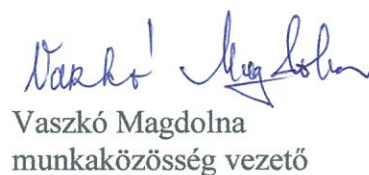 Vaszkó Magdolna
Vaszkó Magdolna
munkaközösség vezető